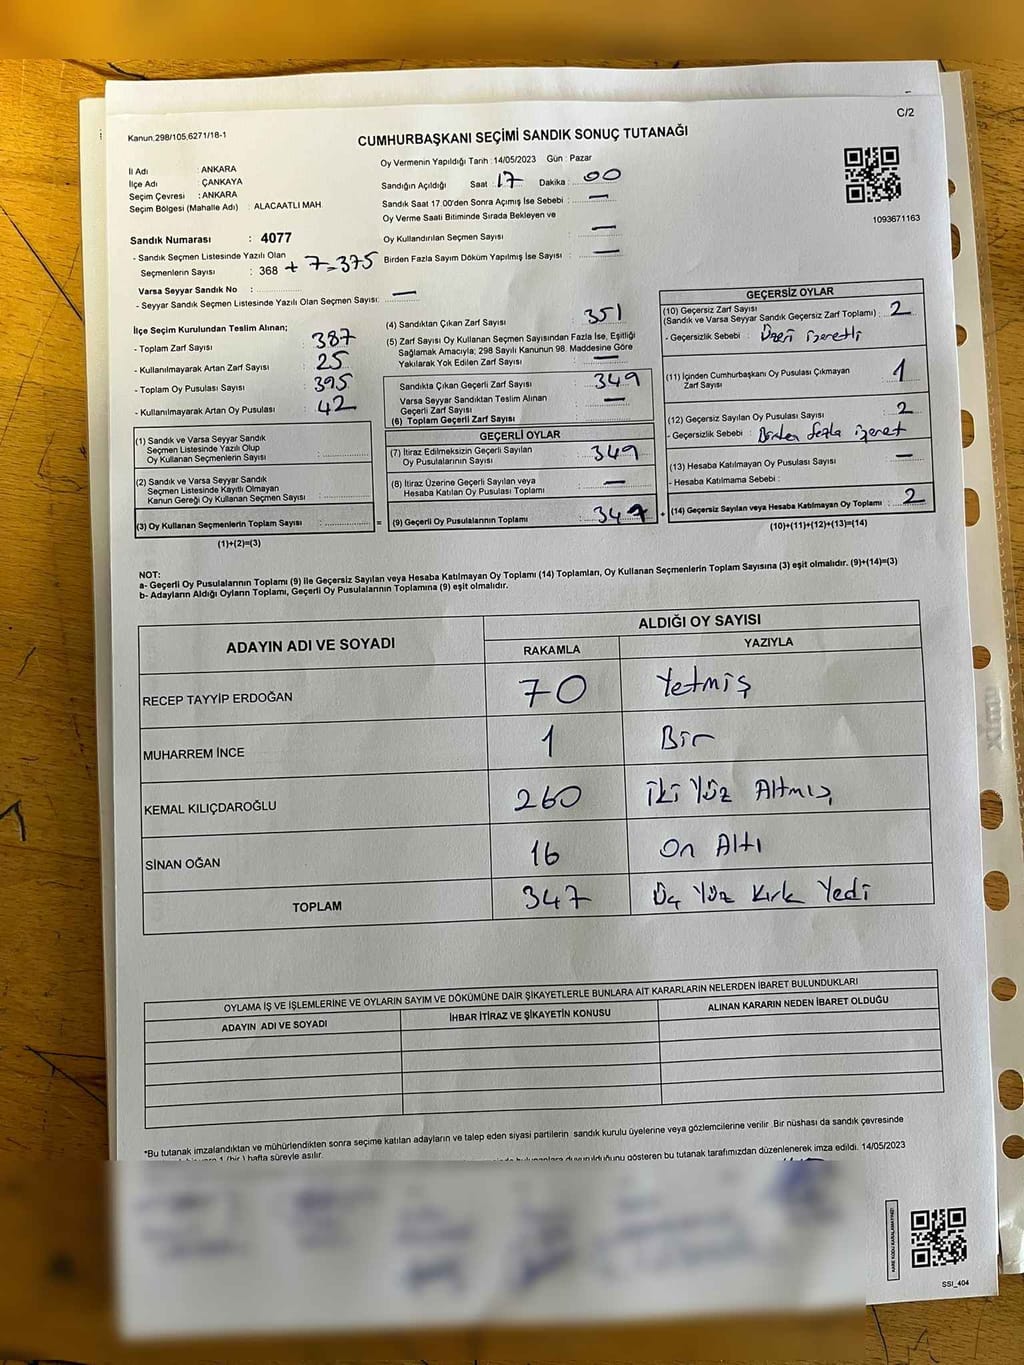 C/2
Kanun.298/105,6271/18-1
CUMHURBAŞKANI SEÇİMİ SANDIK SONUÇ TUTANAĞI
İl Adı : ANKARA
İlçe Adı : ÇANKAYA
Seçim Çevresi : ANKARA
Seçim Bölgesi (Mahalle Adı) : ALACAATLI MAH
Sandık Numarası : 4077
- Sandık Seçmen Listesinde Yazılı Olan
Seçmenlerin Sayısı : 368 + 7=375
Varsa Seyyar Sandık No :
- Seyyar Sandık Seçmen Listesinde Yazılı Olan Seçmen Sayısı: —
Oy Vermenin Yapıldığı Tarih : 14/05/2023 Gün : Pazar
Sandığın Açıldığı Saat : 17 Dakika : 00
Sandık Saat 17.00'den Sonra Açımış İse Sebebi : —
Oy Verme Saati Bitiminde Sırada Bekleyen ve
Oy Kullandırılan Seçmen Sayısı : —
Birden Fazla Sayım Döküm Yapılmış İse Sayısı : —
1093671163
İlçe Seçim Kurulundan Teslim Alınan;
- Toplam Zarf Sayısı : 387
- Kullanılmayarak Artan Zarf Sayısı : 25
- Toplam Oy Pusulası Sayısı : 395
- Kullanılmayarak Artan Oy Pusulası : 42
(1) Sandık ve Varsa Seyyar Sandık
Seçmen Listesinde Yazılı Olup
Oy Kullanan Seçmenlerin Sayısı :
(2) Sandık ve Varsa Seyyar Sandık
Seçmen Listesinde Kayıtlı Olmayan
Kanun Gereği Oy Kullanan Seçmen Sayısı :
(3) Oy Kullanan Seçmenlerin Toplam Sayısı : =
(1)+(2)=(3)
(4) Sandıktan Çıkan Zarf Sayısı : 351
(5) Zarf Sayısı Oy Kullanan Seçmen Sayısından Fazla İse, Eşitliği
Sağlamak Amacıyla; 298 Sayılı Kanunun 98. Maddesine Göre
Yakılarak Yok Edilen Zarf Sayısı : —
Sandıkta Çıkan Geçerli Zarf Sayısı : 349
Varsa Seyyar Sandıktan Teslim Alınan
Geçerli Zarf Sayısı : —
(6) Toplam Geçerli Zarf Sayısı
GEÇERLİ OYLAR
(7) İtiraz Edilmeksizin Geçerli Sayılan
Oy Pusulalarının Sayısı : 349
(8) İtiraz Üzerine Geçerli Sayılan veya
Hesaba Katılan Oy Pusulası Toplamı : —
(9) Geçerli Oy Pusulalarının Toplamı : 347 +
GEÇERSİZ OYLAR
(10) Geçersiz Zarf Sayısı
(Sandık ve Varsa Seyyar Sandık Geçersiz Zarf Toplamı) : 2
- Geçersizlik Sebebi : Üzeri işaretli
(11) İçinden Cumhurbaşkanı Oy Pusulası Çıkmayan
Zarf Sayısı : 1
(12) Geçersiz Sayılan Oy Pusulası Sayısı : 2
- Geçersizlik Sebebi : Birden fazla işaret
(13) Hesaba Katılmayan Oy Pusulası Sayısı : —
- Hesaba Katılmama Sebebi :
(14) Geçersiz Sayılan veya Hesaba Katılmayan Oy Toplamı : 2
(10)+(11)+(12)+(13)=(14)
NOT:
a- Geçerli Oy Pusulalarının Toplamı (9) ile Geçersiz Sayılan veya Hesaba Katılmayan Oy Toplamı (14) Toplamları, Oy Kullanan Seçmenlerin Toplam Sayısına (3) eşit olmalıdır. (9)+(14)=(3)
b- Adayların Aldığı Oyların Toplamı, Geçerli Oy Pusulalarının Toplamına (9) eşit olmalıdır.
ADAYIN ADI VE SOYADI
ALDIĞI OY SAYISI
RAKAMLA YAZIYLA
RECEP TAYYİP ERDOĞAN 70 Yetmiş
MUHARREM İNCE 1 Bir
KEMAL KILIÇDAROĞLU 260 İki Yüz Altmış
SİNAN OĞAN 16 On Altı
TOPLAM 347 Üç Yüz Kırk Yedi
OYLAMA İŞ VE İŞLEMLERİNE VE OYLARIN SAYIM VE DÖKÜMÜNE DAİR ŞİKAYETLERLE BUNLARA AİT KARARLARIN NELERDEN İBARET BULUNDUKLARI
ADAYIN ADI VE SOYADI İHBAR İTİRAZ VE ŞİKAYETİN KONUSU ALINAN KARARIN NEDEN İBARET OLDUĞU
*Bu tutanak imzalandıktan ve mühürlendikten sonra seçime katılan adayların ve talep eden siyasi partilerin sandık kurulu üyelerine veya gözlemcilerine verilir .Bir nüshası da sandık çevresinde
1 (bir ) hafta süreyle asılır.
duyurulduğunu gösteren bu tutanak tarafımızdan düzenlenerek imza edildi. 14/05/2023
SSİ_404